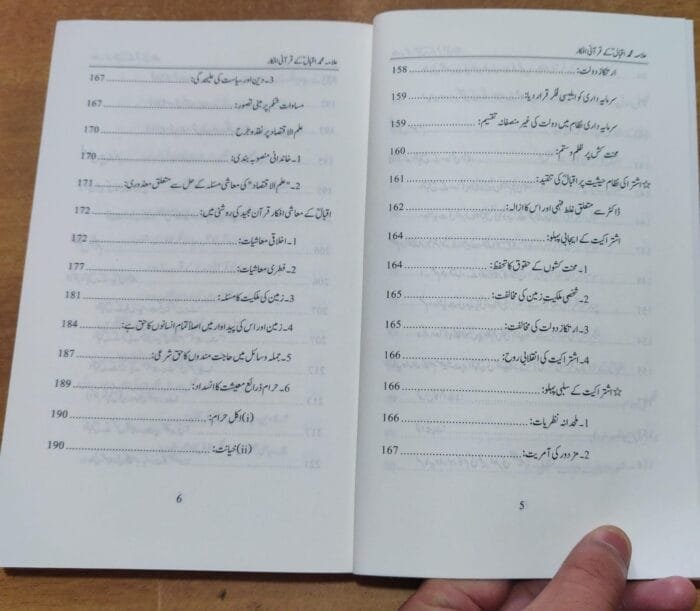 علامہ محمد اقبالؒ کے قرآنی افکار
ارتکازِ دولت: 158
سرمایہ داری کو ابلیسی فکر قرار دیا: 159
سرمایہ داری نظام میں دولت کی غیر منصفانہ تقسیم: 159
محنت کش پر ظلم و ستم: 160
☆اشتراکی نظام حیثیت پر اقبالؒ کی تنقید: 161
ڈاکٹر سے متعلق غلط فہمی اور اس کا ازالہ: 162
اشتراکیت کے ایجابی پہلو: 164
1۔ محنت کشوں کے حقوق کا تحفظ: 164
2۔ شخصی ملکیتِ زمین کی مخالفت: 165
3۔ ارتکازِ دولت کی مخالفت: 165
4۔ اشتراکیت کی انقلابی روح: 166
☆اشتراکیت کے سلبی پہلو: 166
1۔ ملحدانہ نظریات: 166
2۔ مزدور کی آمریت: 167
5
علامہ محمد اقبالؒ کے قرآنی افکار
3۔ دین اور سیاست کی علیحدگی: 167
مساوات شکم پر مبنی تصور: 167
علم الاقتصاد پر نقد و جرح 170
1۔ خاندانی منصوبہ بندی: 170
2۔ "علم الاقتصاد" کی معاشی مسئلہ کے حل سے متعلق معذوری: 171
اقبالؒ کے معاشی افکار قرآن مجید کی روشنی میں: 172
1۔ اخلاقی معاشیات: 172
2۔ فطری معاشیات: 177
3۔ زمین کی ملکیت کا مسئلہ: 181
4۔ زمین اور اس کی پیداوار میں اصلاً تمام انسانوں کا حق ہے: 184
5۔ جملہ وسائل میں حاجت مندوں کا حق شرعی: 187
6۔ حرام ذرائع معیشت کا انسداد: 189
(i) اکل حرام: 190
(ii) خیانت: 190
6